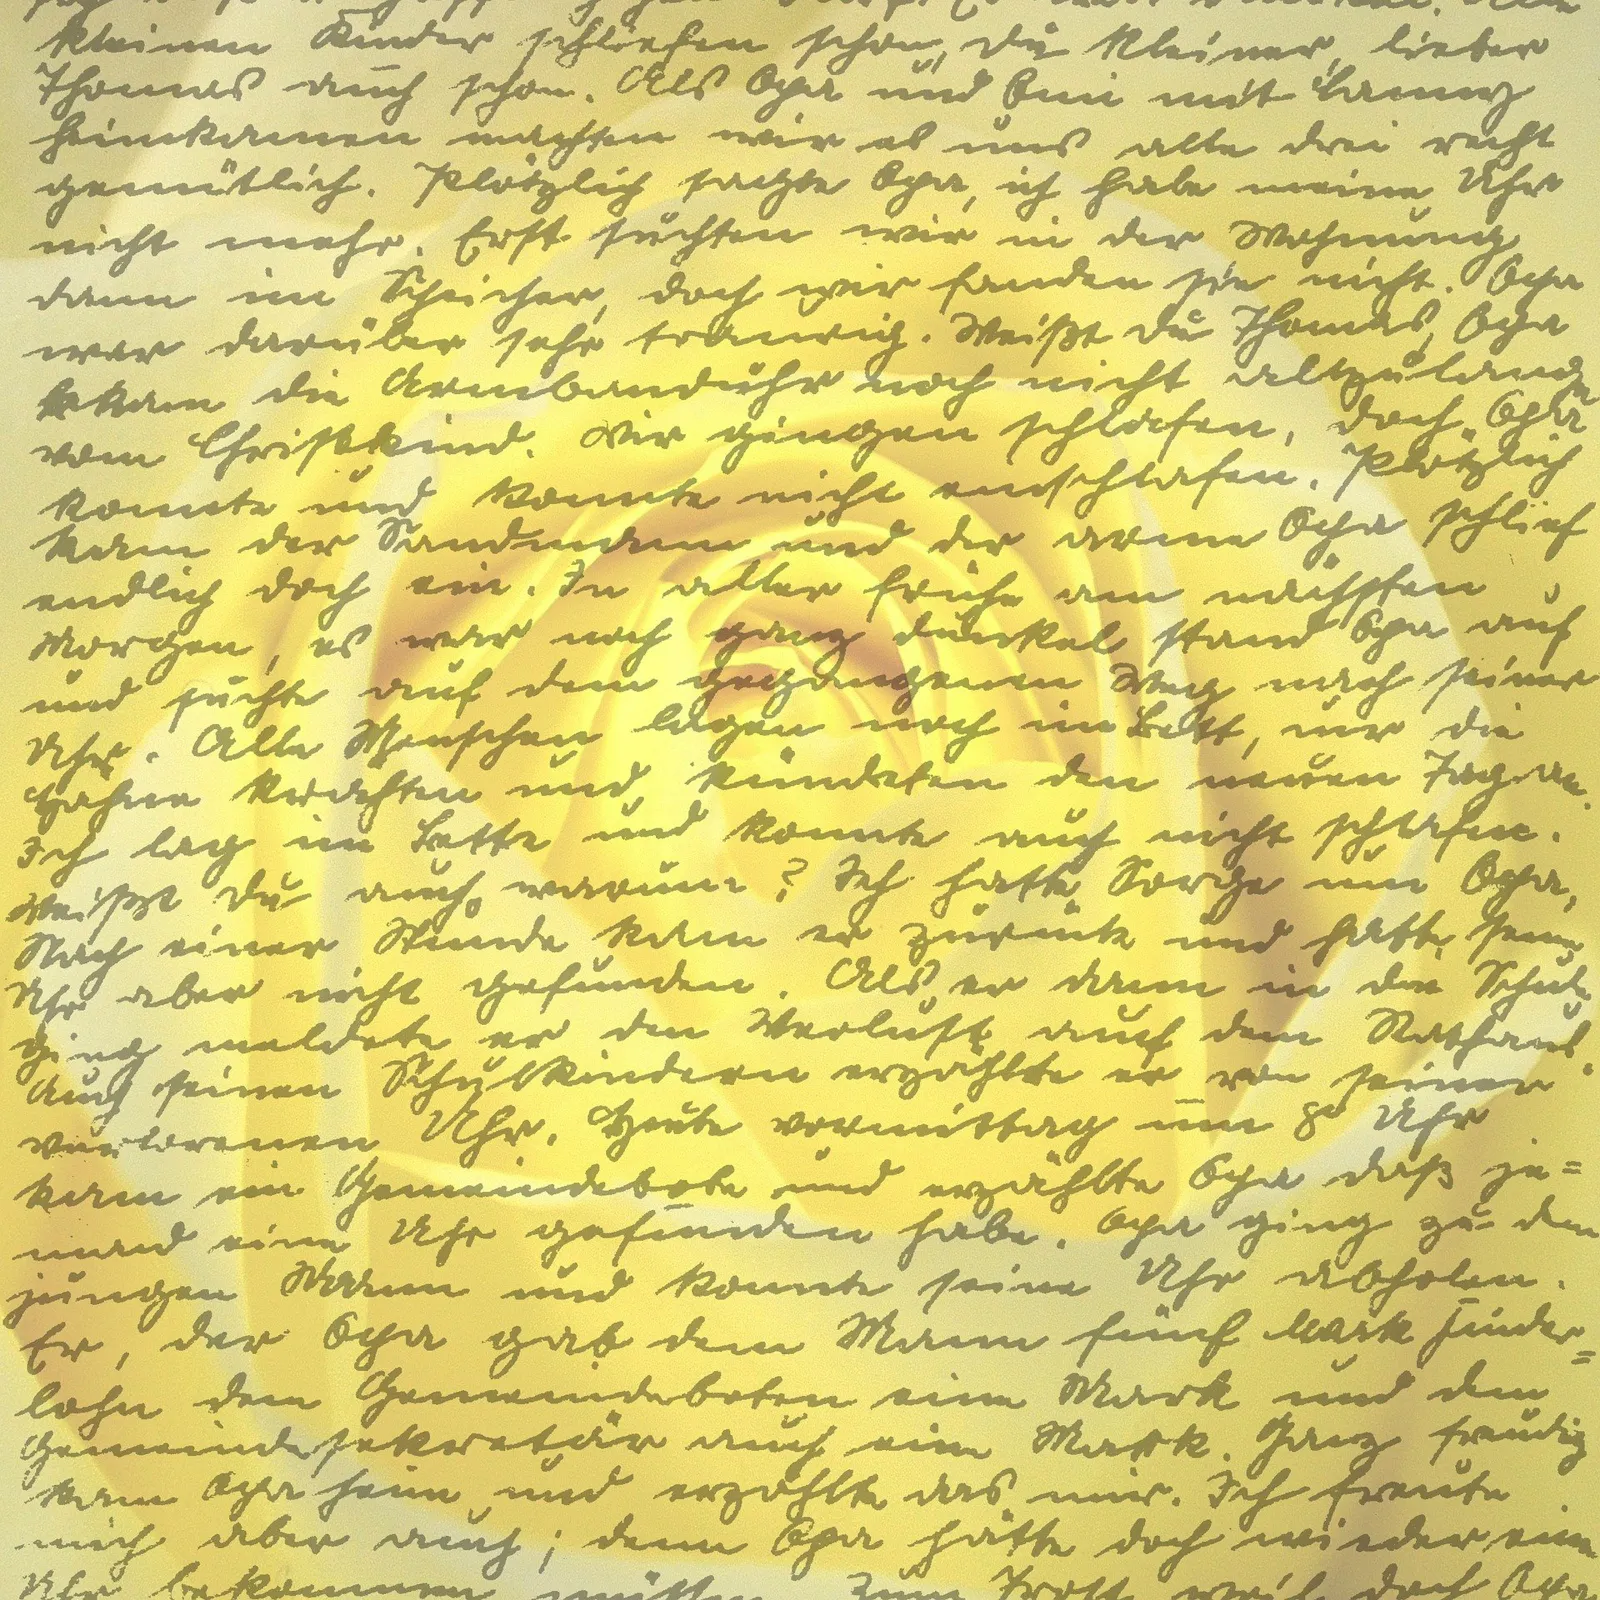 kleinen Kinder schliefen schon, du kleiner, lieber
Thomas auch schon. Als Opa und
heimkamen machten wir es uns alle drei recht
gemütlich. Plötzlich sagte Opa, ich habe meine Uhr
nicht mehr. Erst suchten wir in der Wohnung
dann im Speicher, doch wir fanden sie nicht. Opa
war darüber sehr traurig. Weißt du Thomas, Opa
bekam die Armbanduhr noch nicht allzulange
vom Christkind. Wir gingen schlafen, doch Opa
konnte und konnte nicht einschlafen. Plötzlich
kam der Sandmann und der arme Opa schlief
endlich doch ein. In aller frühe am nächsten
Morgen, es war noch ganz dunkel stand Opa auf
und suchte auf dem gegangenen Weg nach seiner
Uhr. Alle Menschen lagen noch im Bett, nur die
Hähne krähten und kündeten den neuen Tag an.
Ich lag im Bette und konnte auch nicht schlafen.
Weißt du auch warum? Ich hatte Sorge um Opa,
Nach einer Stunde kam er zurück und hatte seine
Uhr aber nicht gefunden. Als er dann in die Schule
ging meldete er den Verlust auch dem Rathaus.
Auch seinen Schulkindern erzählte er von seiner
verlorenen Uhr. Heute vormittag um 8° Uhr
kam ein Gemeindebote und erzählte Opa daß je=
mand eine Uhr gefunden habe. Opa ging zu dem
jungen Mann und konnte seine Uhr abholen.
Er, der Opa gab dem Mann fünf Mark Finder=
lohn dem Gemeindeboten eine Mark und dem
Gemeindesekretär auch eine Mark. Ganz freudig
kam Opa heim und erzählte das mir. Ich freute
mich aber auch; denn Opa hätte doch wieder eine
Uhr bekommen müssen zum Trost weil doch Opa